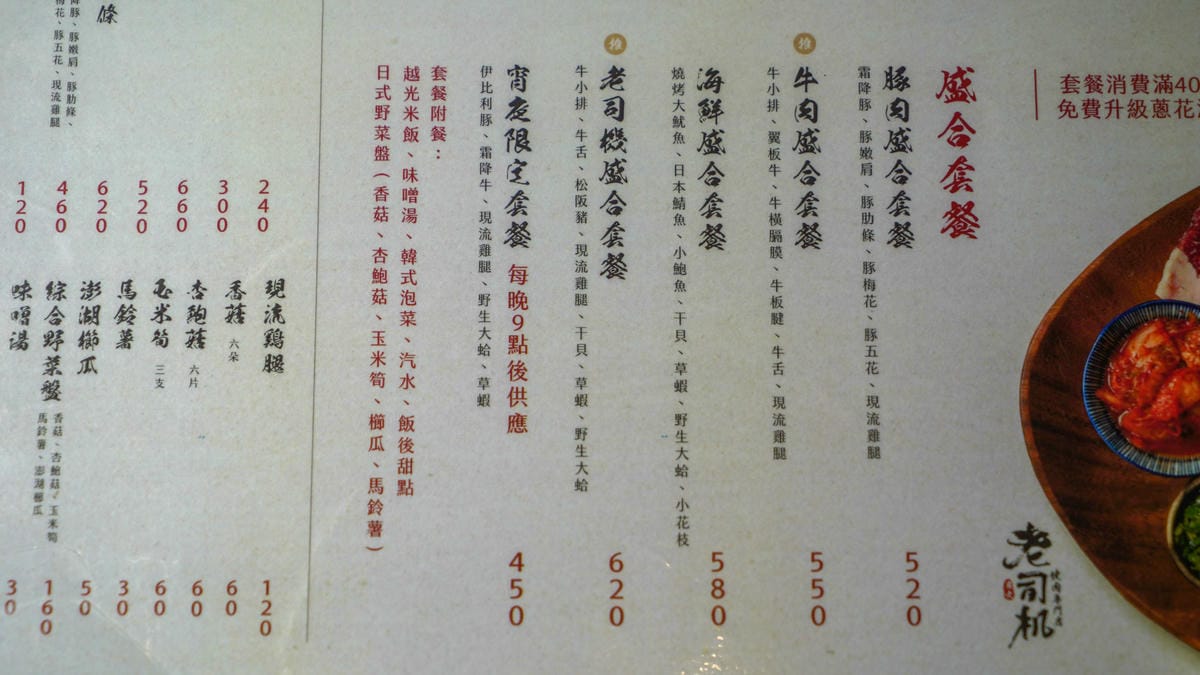 套餐消費滿40
免費升級蔥花
盛合套餐
豚肉盛合套餐
520
霜降豚、豚嫩肩、豚肋條、豚梅花、豚五花、現流雞腿
推
牛肉盛合套餐
550
牛小排、翼板牛、牛橫膈膜、牛板腱、牛舌、現流雞腿
海鮮盛合套餐
580
燒烤大魷魚、日本鯖魚、小鮑魚、干貝、草蝦、野生大蛤、小花枝
推
老司機盛合套餐
620
牛小排、牛舌、松阪豬、現流雞腿、干貝、草蝦、野生大蛤
宵夜限定套餐 每晚9點後供應
450
伊比利豚、霜降牛、現流雞腿、野生大蛤、草蝦
套餐附餐：
越光米飯、味噌湯、韓式泡菜、汽水、飯後甜點
日式野菜盤（香菇、杏鮑菇、玉米筍、櫛瓜、馬鈴薯）
老司机
燒肉專門店
條
降豚、豚嫩肩、豚肋條、
梅花、豚五花、現流雞腿
240
300
660
520
620
460
120
現流雞腿
120
香菇 六朵
60
杏鮑菇 六片
60
玉米筍 三支
60
馬鈴薯
30
澎湖櫛瓜
50
綜合野菜盤
160
香菇、杏鮑菇、玉米筍
馬鈴薯、澎湖櫛瓜
味噌湯
30